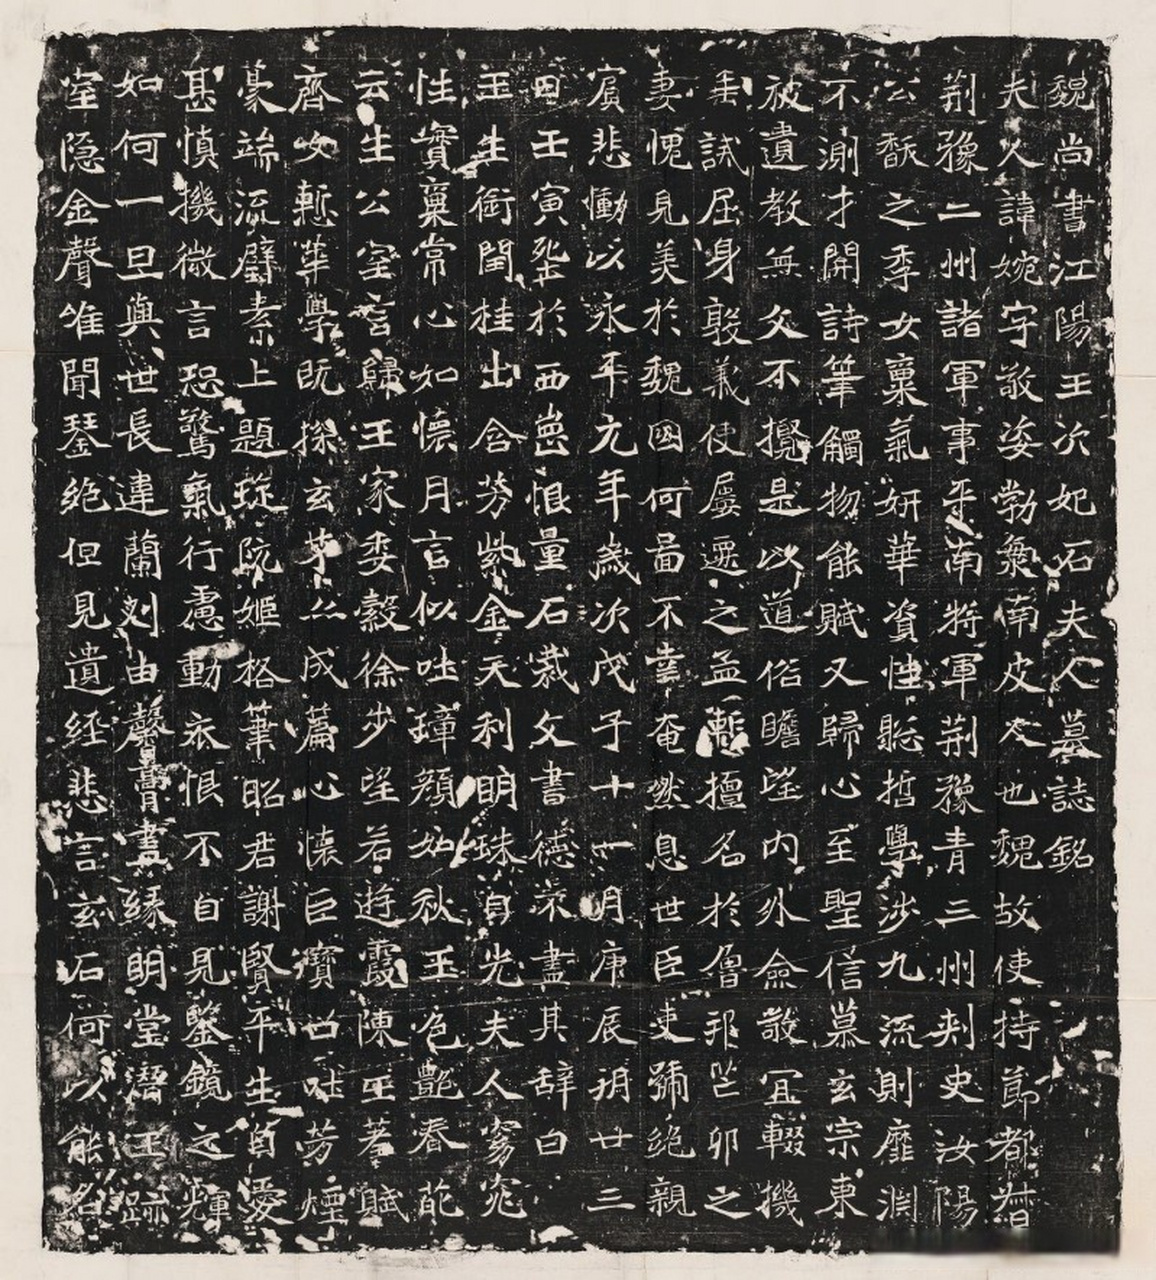 魏尚書江陽王次妃石夫人墓誌銘
夫人諱婉字敬姿勃海南皮人也魏故使持節都督
荊豫二州諸軍事平南將軍荊豫青三州刺史汝陽
公馥之季女稟氣妍華資性聡哲學涉九流則靡淵
不測才關詩筆觸物能賦又歸心至聖信慕玄宗東
被遺教無文不攬是以道俗瞻望內外僉敬宜輟機
垂試屈身敦義使屢遷之孟慚擅名於魯邦芒卯之
妻愧見美於魏國何啚不幸奄然息世臣吏號絕親
賓悲慟以永平元年歲次戊子十一月庚辰朔廿三
日壬寅塟於西崗恨量石裁文書德不盡其辭曰
玉生銜閏桂出含芳紫金天利明珠自光夫人窈窕
性實稟常心如懷月言似吐璋顏如秋玉色艷春葩
云生公室言歸王家委縠徐步望若遊霞陳王羞賦
齊女慚華學既探玄才亦成篇心懷巨寶口吐芳煙
豪端流璧素上題琁阮姬格筆昭君謝賢平生自愛
甚慎機微言恐驚氣行慮動衣恨不自見鑒鏡之輝
如何一旦與世長違蘭刈由馨膏盡緣明堂潛玉跡
室隱金聲唯聞琴絕但見遺經悲言玄石何以能名